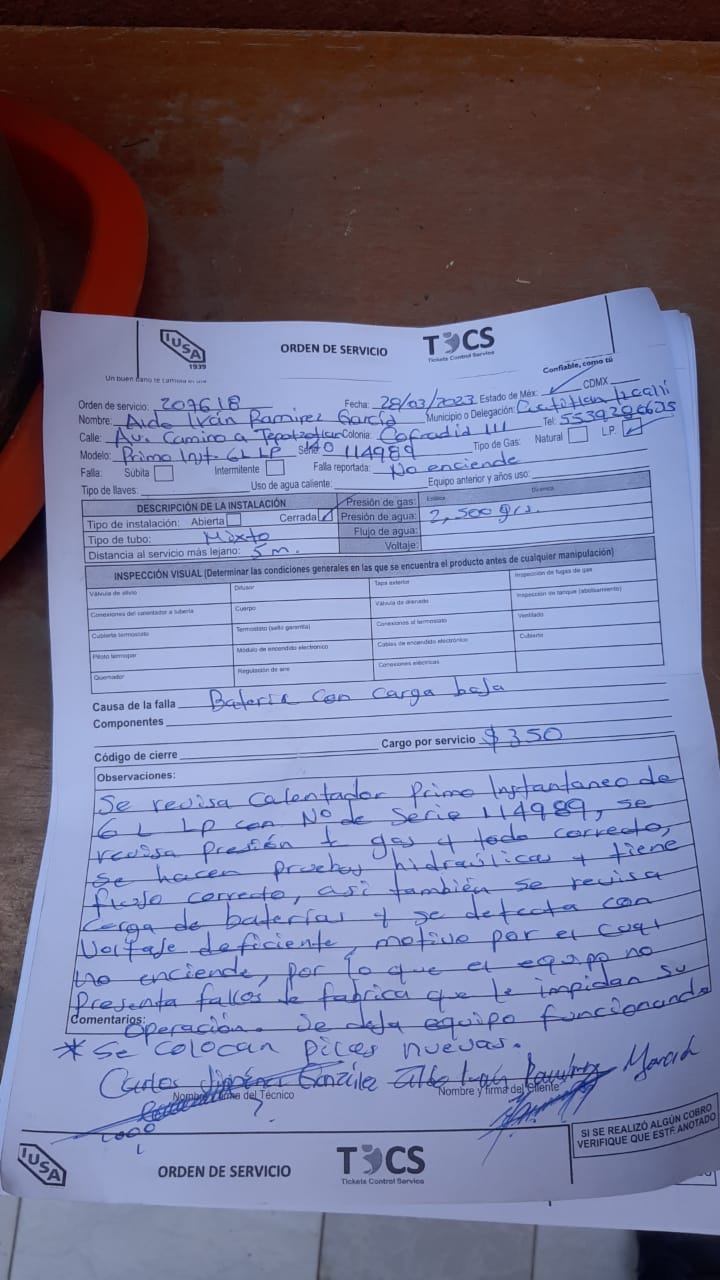 IUSA
1939
ORDEN DE SERVICIO
TCS
Tickets Control Service
Un buen
Confiable, como tú
Orden de servicio: 207618 Fecha: 28/03/2023 Estado de Méx: ✓ CDMX
Nombre: Aldo Iván Ramirez García Municipio o Delegación: Cuatitlan Izcalli
Calle: Av. Camino a Tepotzotlan Colonia: Cofradia III Tel:
Modelo: Primo Inst. 6L LP Serie: 114989 Tipo de Gas: Natural L.P. ✓
Falla: Súbita Intermitente Falla reportada: No enciende
Tipo de llaves: Uso de agua caliente: Equipo anterior y años uso:
DESCRIPCIÓN DE LA INSTALACIÓN Presión de gas: Estática Dinámica
Tipo de instalación: Abierta Cerrada ✓ Presión de agua: 2,500 grs.
Tipo de tubo: Mixto Flujo de agua:
Distancia al servicio más lejano: 5 m. Voltaje:
INSPECCIÓN VISUAL (Determinar las condiciones generales en las que se encuentra el producto antes de cualquier manipulación)
Válvula de alivio Difusor Tapa exterior Inspección de fugas de gas
Conexiones del calentador a tubería Cuerpo Válvula de drenado Inspección de tanque (abolsamiento)
Cubierta termostato Termostato (sello garantía) Conexiones al termostato Ventilado
Piloto termopar Módulo de encendido electrónico Cables de encendido electrónico Cubierta
Quemador Regulación de aire Conexiones eléctricas
Causa de la falla Batería con carga baja
Componentes
Código de cierre Cargo por servicio $350
Observaciones:
Se revisa calentador Primo Instantaneo de
6 L LP con N° de Serie 114989, se
revisa presión gas y todo correcto,
se hacen pruebas hidraúlicas y tiene
flujo correcto, asi también se revisa
carga de baterías y se detecta con
Voltaje deficiente, motivo por el cual
no enciende, por lo que el equipo no
Presenta fallos de fabrica que le impidan su
Comentarios: Operación. Se deja equipo funcionando
* Se colocan pilas nuevas.
Carlos Jiménez González Aldo Iván Ramírez García
Nombre y firma del Técnico Nombre y firma del Cliente
SI SE REALIZÓ ALGÚN COBRO
VERIFIQUE QUE ESTÉ ANOTADO
IUSA
ORDEN DE SERVICIO
TCS
Tickets Control Service